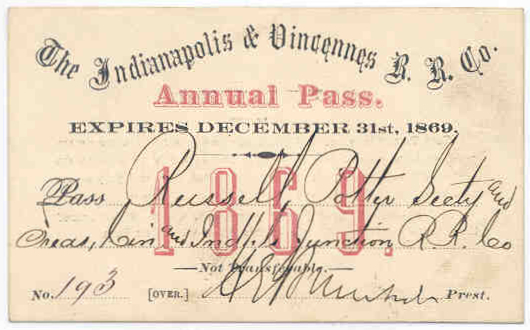 The Indianapolis & Vincennes R. R. Co.
Annual Pass.
EXPIRES DECEMBER 31st, 1869.
1869.
Pass Russell Potter Secty and
Treas, Cin and Indpls Junction R. R. Co
—Not Transferable.—
No. 193 [OVER.] Prest.